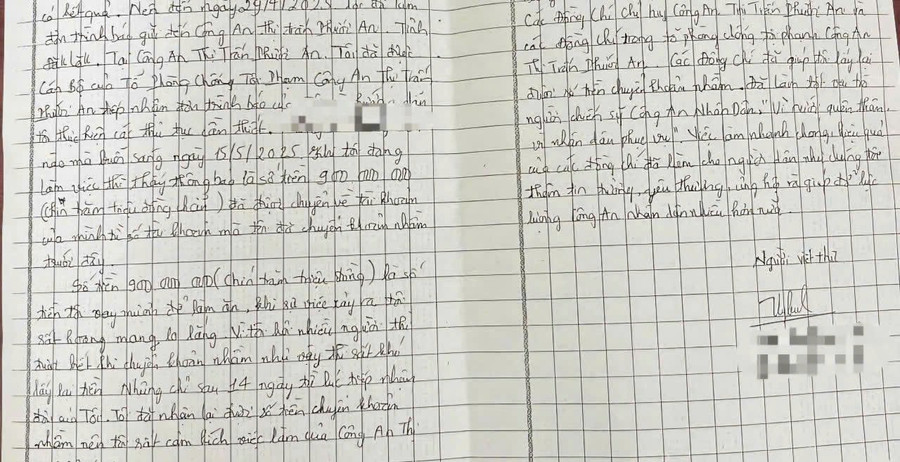 có kết quả. Nên đến ngày 29/4/2025 tôi đã làm
đơn trình báo gửi đến Công An thị trấn Phước An. Tỉnh
Đăk Lăk. Tại Công An Thị Trấn Phước An. Tôi đã được
Cán Bộ của Tổ Phòng Chống Tội Phạm Công An Thị Trấn
Phước An tiếp nhận đơn trình báo
tôi thực hiện các thủ tục cần thiết.
nào mà buổi sáng ngày 15/5/2025 khi tôi đang
làm việc thì thấy thông báo là số tiền 900 000 000
(Chín trăm triệu đồng chẵn) đã được chuyển về tài khoản
của mình từ số tài khoản mà tôi đã chuyển khoản nhầm
trước đây.
Số tiền 900 000 000 (Chín trăm triệu đồng) là số
tiền tôi vay mình để làm ăn, khi sự việc xảy ra tôi
rất hoang mang lo lắng. Vì tôi hỏi nhiều người thì
được biết khi chuyển khoản nhầm như vậy thì rất khó
lấy lại tiền Nhưng chỉ sau 14 ngày từ lúc tiếp nhận
đơn của Tôi. Tôi đã nhận lại được số tiền chuyển khoản
nhầm nên tôi rất cảm kích việc làm của Công An Thị
Các Đồng Chí chỉ huy Công An Thị Trấn Phước An và
các đồng chí trong tổ phòng chống tội phạm Công An
Thị Trấn Phước An. Các Đồng Chí đã giúp tôi lấy lại
được số tiền chuyển khoản nhầm. Đã làm tốt vai trò
người chiến sỹ Công An Nhân Dân, "Vì nước quên thân,
vì nhân dân phục vụ" Việc làm nhanh chóng, hiệu quả
của các đồng chí đã làm cho người dân như chúng tôi
thêm tin tưởng, yêu thương, ủng hộ và giúp đỡ lực
lượng Công An nhân dân nhiều hơn nữa.
Người viết thư